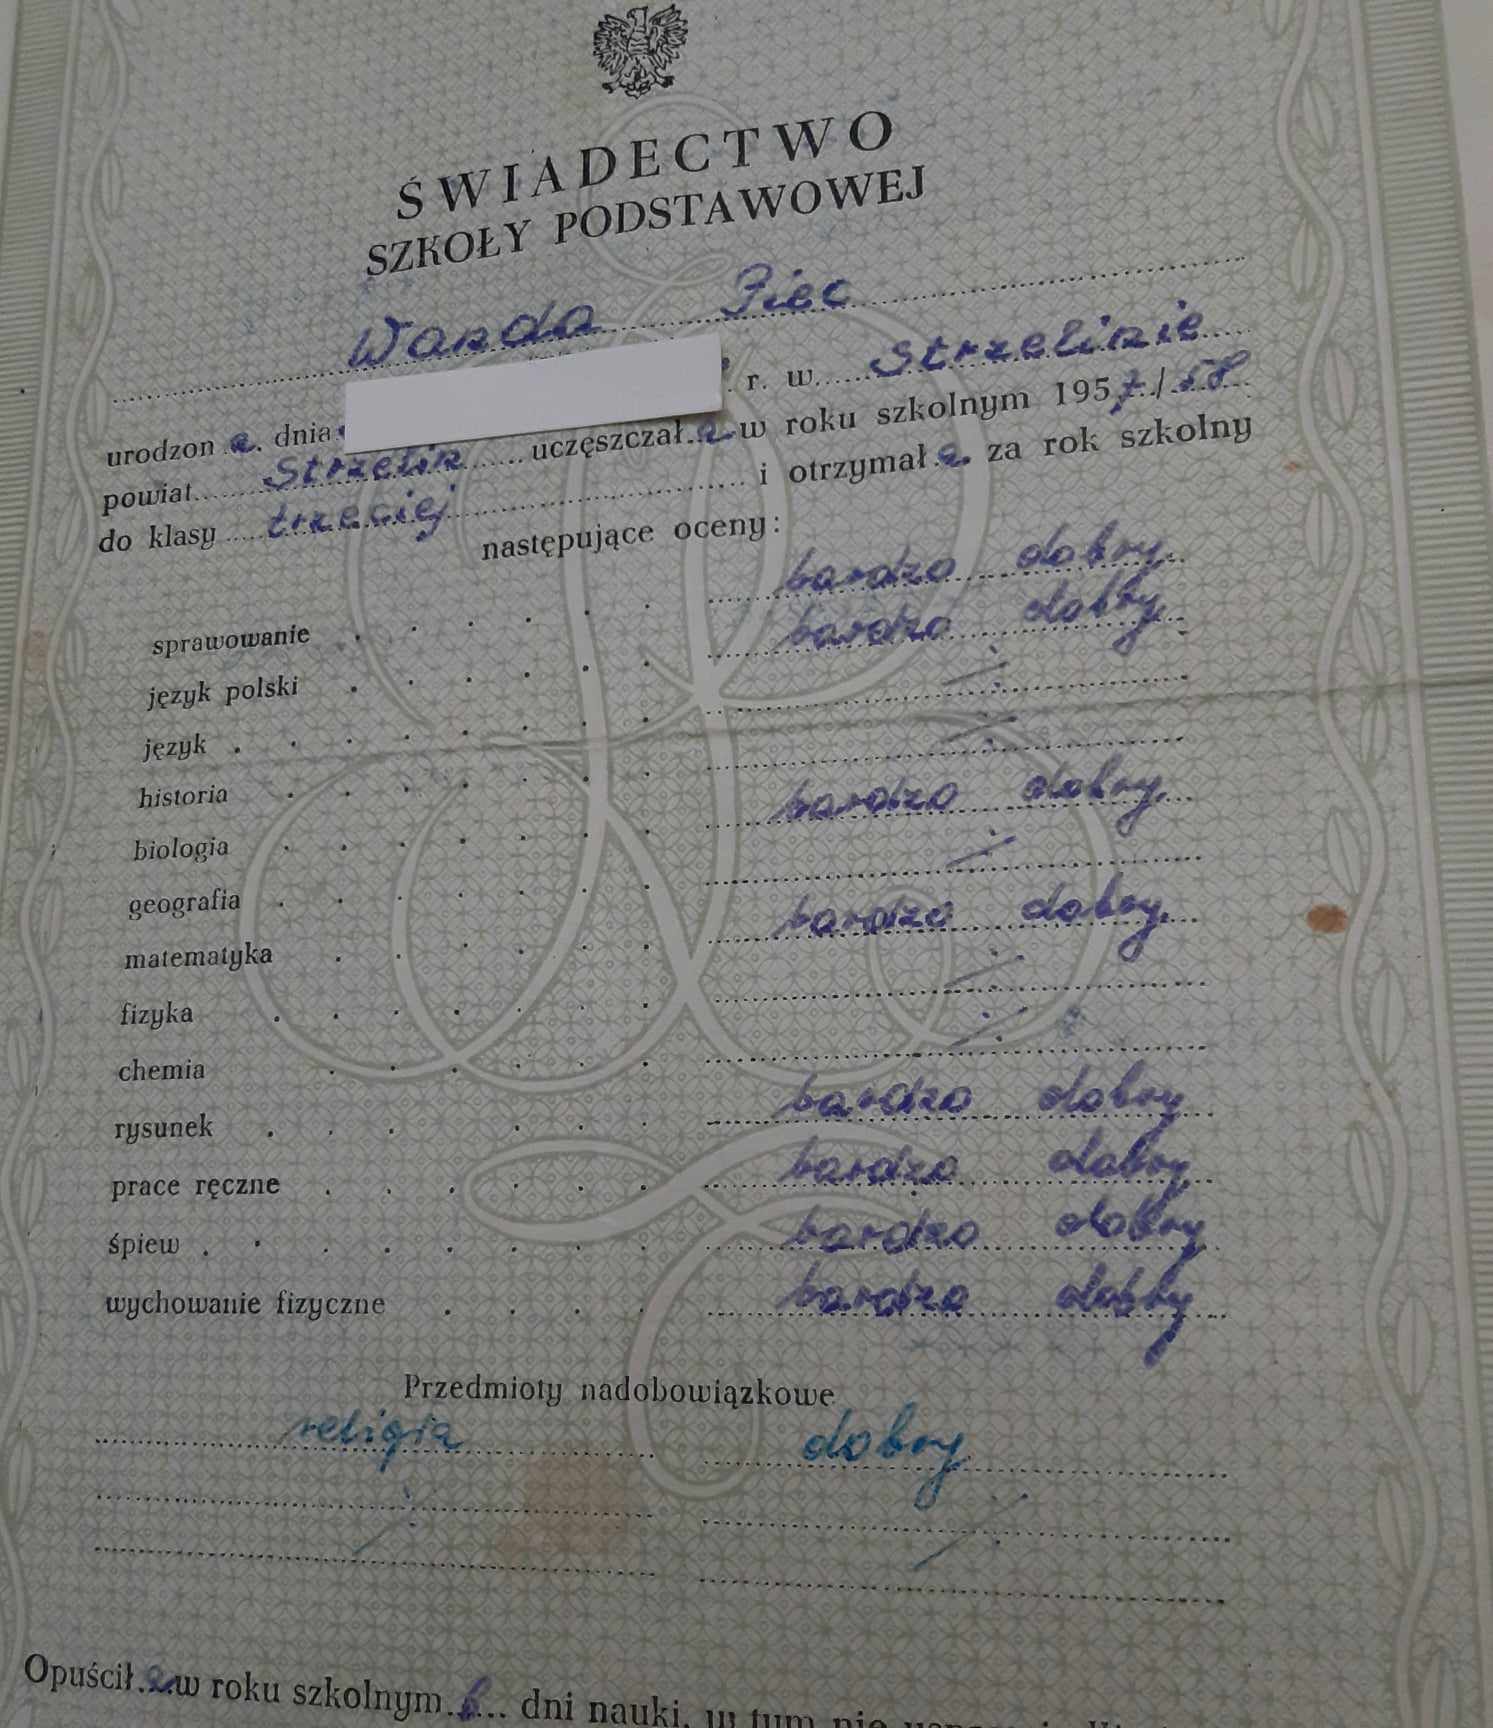 ŚWIADECTWO
SZKOŁY PODSTAWOWEJ
Wanda Piec
urodzona dnia r. w Strzelinie
powiat Strzelin uczęszczała w roku szkolnym 1957/58
do klasy trzeciej i otrzymała za rok szkolny
następujące oceny:
sprawowanie bardzo dobry
język polski bardzo dobry
język
historia
biologia bardzo dobry
geografia
matematyka bardzo dobry
fizyka
chemia
rysunek bardzo dobry
prace ręczne bardzo dobry
śpiew bardzo dobry
wychowanie fizyczne bardzo dobry
Przedmioty nadobowiązkowe
religia dobry
Opuściła w roku szkolnym 6 dni nauki, w tym nie